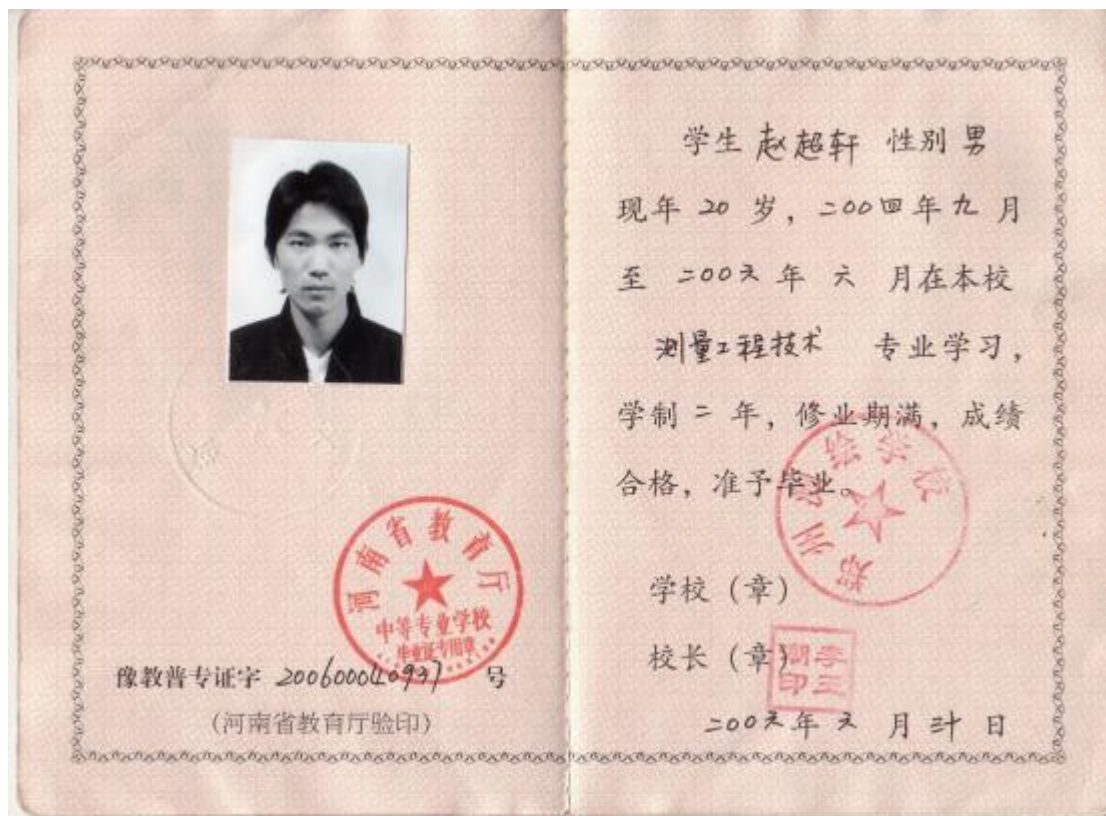 河南省教育厅
中等专业学校
毕业证专用章
豫教普专证字 200600040937 号
(河南省教育厅验印)
学生 赵超轩 性别 男
现年 20 岁，二00四年九 月
至 二00六 年 六 月在本校
测量工程技术 专业学习，
学制 二 年，修业期满，成绩
合格，准予毕业。
郑州测绘学校
学校（章）
校长（章）
二00六年 六 月 三十 日